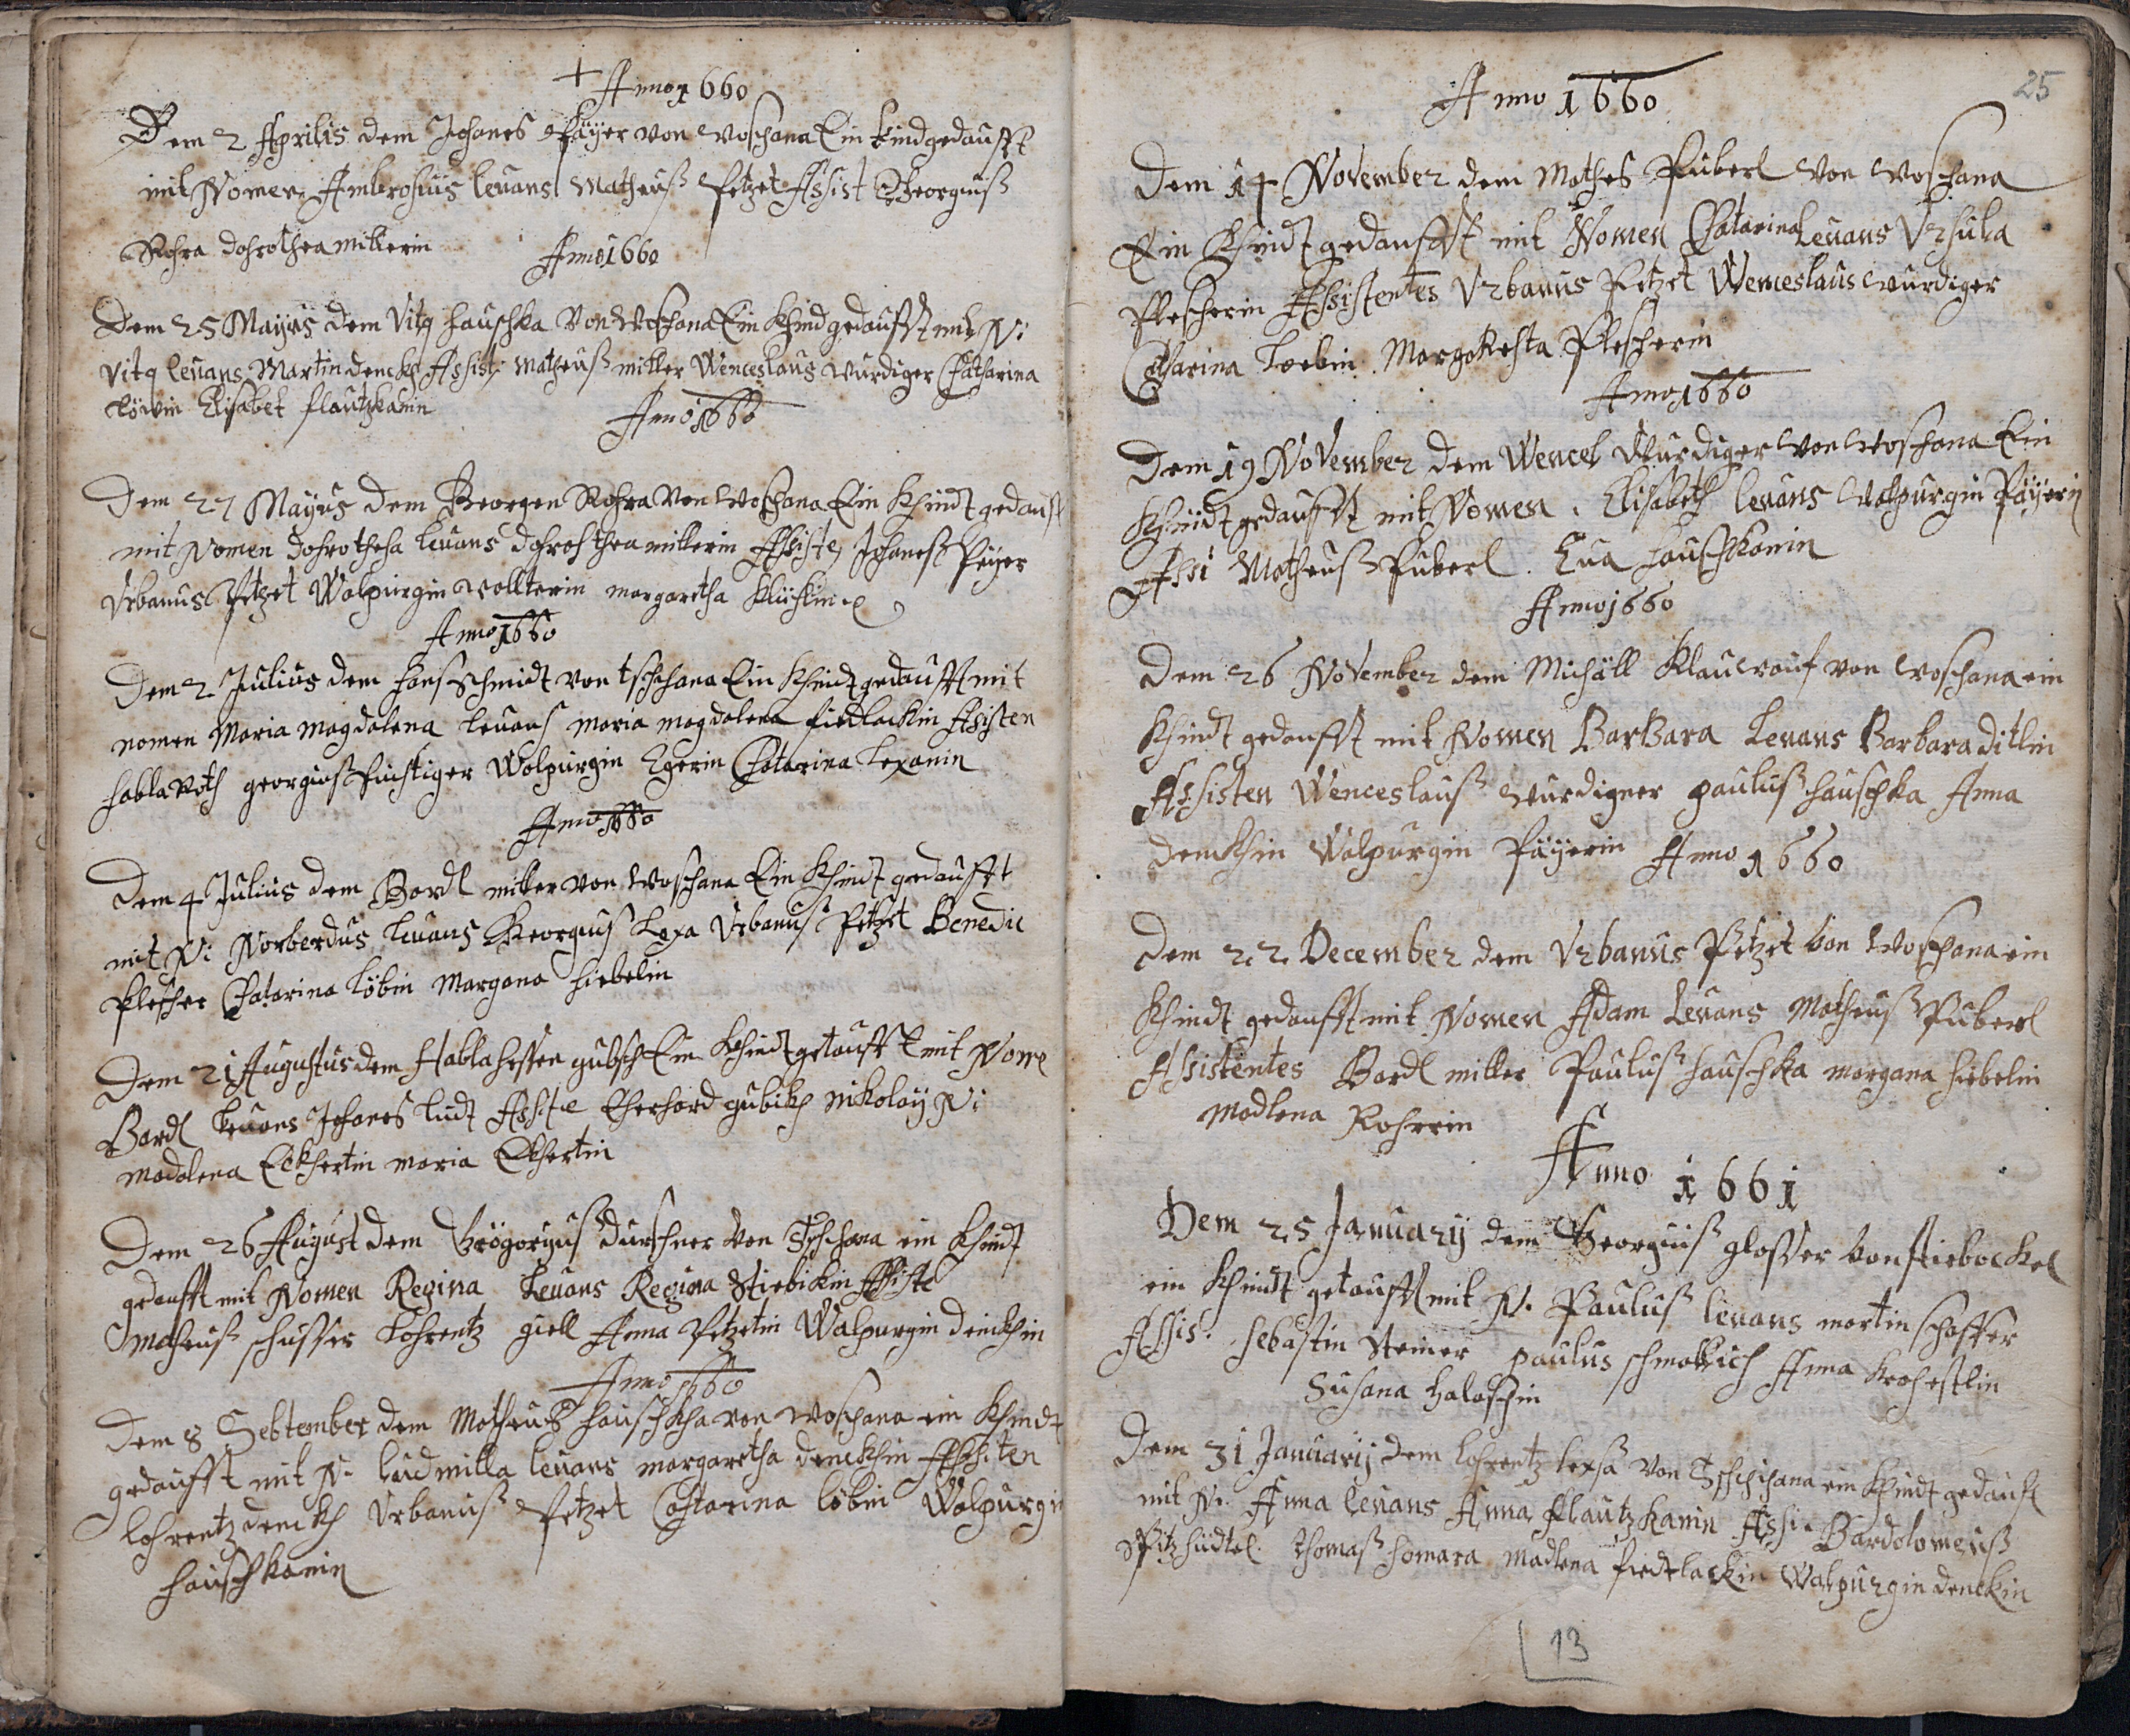 Anno 1660
Dem 2 Aprilis dem Johanes Päyer von Woschana Ein kindgedaufft
mit Nomen Ambrosius levans Matheuß Petzet Assist Georgiuß
Rohra dohrothea millerin
Anno 1660
Dem 25 Mayus dem Vitg hauschka Von Woschana Ein Khind gedaufft mit N:
Vitg levans Martin denckh Assist: Matheuß miller Wenceslaus Wurdiger Catharina
Löwin Elisabet flautzkanin
Anno 1660
Dem 27 Mayus dem Georgen Rohra Von Woschana Ein Khindt gedauft
mit Nomen dohrothesa levans dohrohthea millerin Assiste Johaneß Päyer
Urbanus Petzet Walpurgin Wollterin margaretha
Anno 1660
Dem 2 Julius dem hanß Schmidt von tschana Ein Khindt gedaufft mit
nomen Maria Magdalena levans maria magdalena fiedlackin Asisten
habla Roth georgiuß Walpurgin Egerin Catarina Lexanin
Anno 1660
Dem 4 Julius dem Bardl miller von Woschana Ein Khindt gedaufft
mit N: Norberdus levans Georgius Lexa Urbanuß Petzet Benedic
Plescher Catarina Löbin Margana hiebelin
Dem 21 Augustus dem Habla hessen gubsch Ein Khindt getaufft mit Nome
Bardl levans Johanes ludt Assiste Eherhard gubikh nikolay N:
madalena Eckhertin maria Eckhertin
Dem 26 August dem Grögoryuß durschner Von Tschana ein Khindt
gedaufft mit Nomen Regina Levans Regina Stiebickin Assiste
Matheuß schusser Lohrentz giell Anna Petzetin Walpurgin denckhin
Anno 1660
Dem 8 Sebtember dem Matheuß hauschkha von Woschana ein Khindt
gedaufft mit N. ludmilla levans margaretha denckhin Assisten
lohrentz denckh Urbanuß Petzet Catarina löbin Walpurgin
hauschkanin
25
Anno 1660
Dem 14 November dem Mathes Puberl Von Woschana
Ein Khindt gedaufft mit Nomen Chatarina Levans Ursula
Plescherin Assistentes Urbanus Petzet Wenceslaus Wurdiger
Catharina Loebin. Margoketa Plescherin
Anno 1660
Dem 19 November dem Wencel Wurdiger von Woschana Ein
Khindt gedaufft mit Nomen. Elisabeth levans Walpurgin Päyerin
Assi Matheuß Puberl. Eua hauschkanin
Anno 1660
Dem 26 November dem Michäll Klauwauf von Woschana ein
Khindt gedaufft mit Nomen BarBara Levans Barbara ditlin
Assisten Wenceslauß Wurdigner pauluß hauschka Anna
denckhin Walpurgin Päyerin Anno 1660
Dem 22. December dem Urbanus Petzet von Woschana ein
Khindt gedaufft mit Nomen Adam Levans Matheuß Puberl
Assistentes Bardl miller Pauluß hauschka margana hiebelin
Madlena Rohrrin
Anno 1661
Dem 25 January dem Georguiß glosser von stiebockel
ein Khindt getaufft mit N. Pauluß levans martin schaffer
Assis. sebastin Steiner paulus Anna
Susana halaschin
Dem 31 January dem lohrentz lexsa Von Tschihana ein Khindt gedauft
mit N. Anna levans Anna flautzkanin Assi. Bardolomeuß
Spitzhüdtel. Thomaß homara Madlena fiedtlackin Walpurgin denckin
13